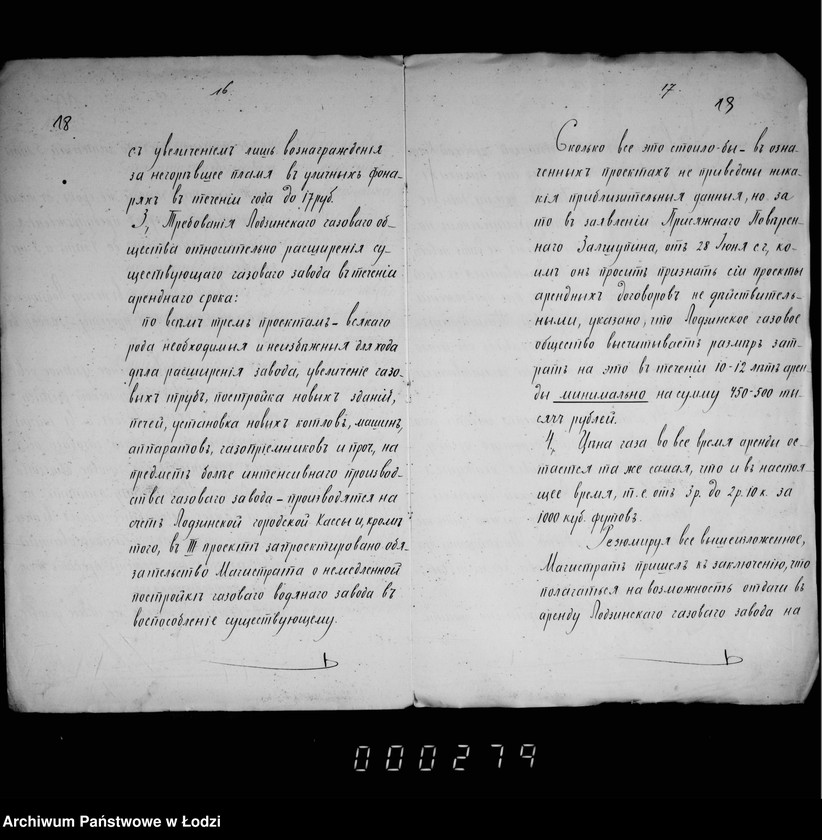 16
18
съ увеличеніемъ лишь вознагражденія
за негорѣвшее пламя въ уличныхъ фона-
ряхъ въ теченіи года до 17 руб.
3, Требованія Лодзинскаго газоваго об-
щества относительно расширенія су-
ществующаго газоваго завода въ теченіи
аренднаго срока:
по всѣмъ тремъ проектамъ - всякаго
рода необходимыя и неизбѣжныя для хода
дѣла расширенія завода, увеличеніе газо-
выхъ трубъ, постройка новыхъ зданій,
печей, установка новыхъ котловъ, машинъ,
аппаратовъ, газопріемниковъ и проч., на
предметъ болѣе интенсивнаго производ-
ства газоваго завода - производятся на
счетъ Лодзинской городской Кассы и, кромѣ
того, въ III проектѣ запроектировано обя-
зательство Магистрата о немедленной
постройкѣ газоваго водянаго завода въ
воспособленіе существующему.
17
19
Сколько все это стоило-бы - въ озна-
ченныхъ проектахъ не приведены ника-
кія приблизительныя данныя, но за
то въ заявленіи Присяжнаго Повѣрен-
наго Залшупина, отъ 28 Іюня с.г., ко-
имъ онъ проситъ признать сіи проекты
арендныхъ договоровъ не дѣйствитель-
ными, указано, что Лодзинское газовое
общество высчитываетъ размѣръ зат-
ратъ на это въ теченіи 10-12 лѣтъ арен-
ды минимально на сумму 450-500 ты-
сячъ рублей.
4, Цѣна газа во все время аренды ос-
тается та же самая, что и въ настоя-
щее время, т.е. отъ 3 р. до 2 р. 10 к. за
1000 куб. футовъ.
Резюмируя все вышеизложенное,
Магистратъ пришелъ къ заключенію, что
полагаться на возможность отдачи въ
аренду Лодзинскаго газоваго завода на
000279
Archiwum Państwowe w Łodzi